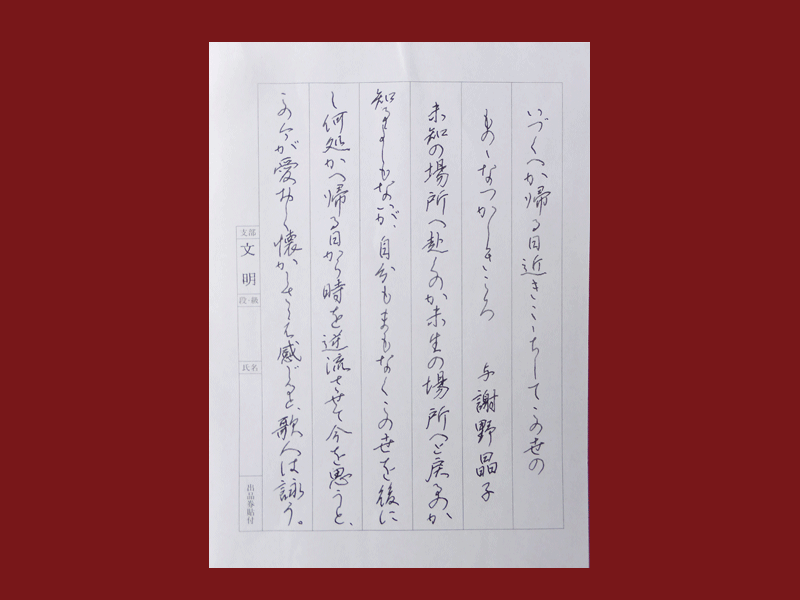 いづくへか帰る日近きここちしてこの世の
ものゝなつかしきころ　与謝野晶子
未知の場所へ赴くのか未生の場所へと戻るのか
知るよしもないが、自分もまもなくこの世を後に
し何処かへ帰る日から時を逆流させて今を思うと、
この今が愛おしく懐かしさらも感じると、歌人は詠う。
支部
文明
段・級
氏名
出品券貼付